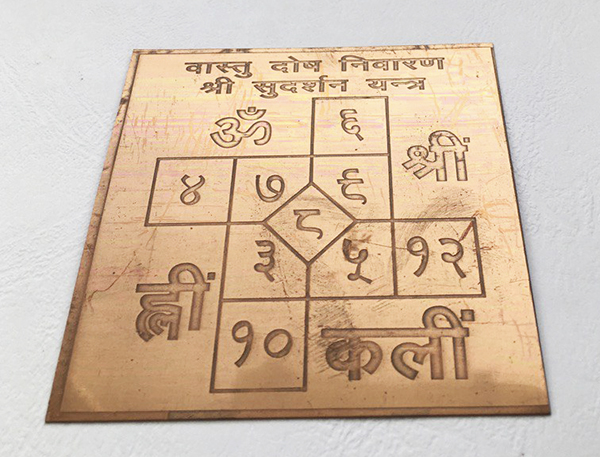 वास्तु दोष निवारण
श्री सुदर्शन यन्त्र
ॐ ६ श्रीं
४ ७ ९
८
३ ५ १२
ह्रीं १० कलीं